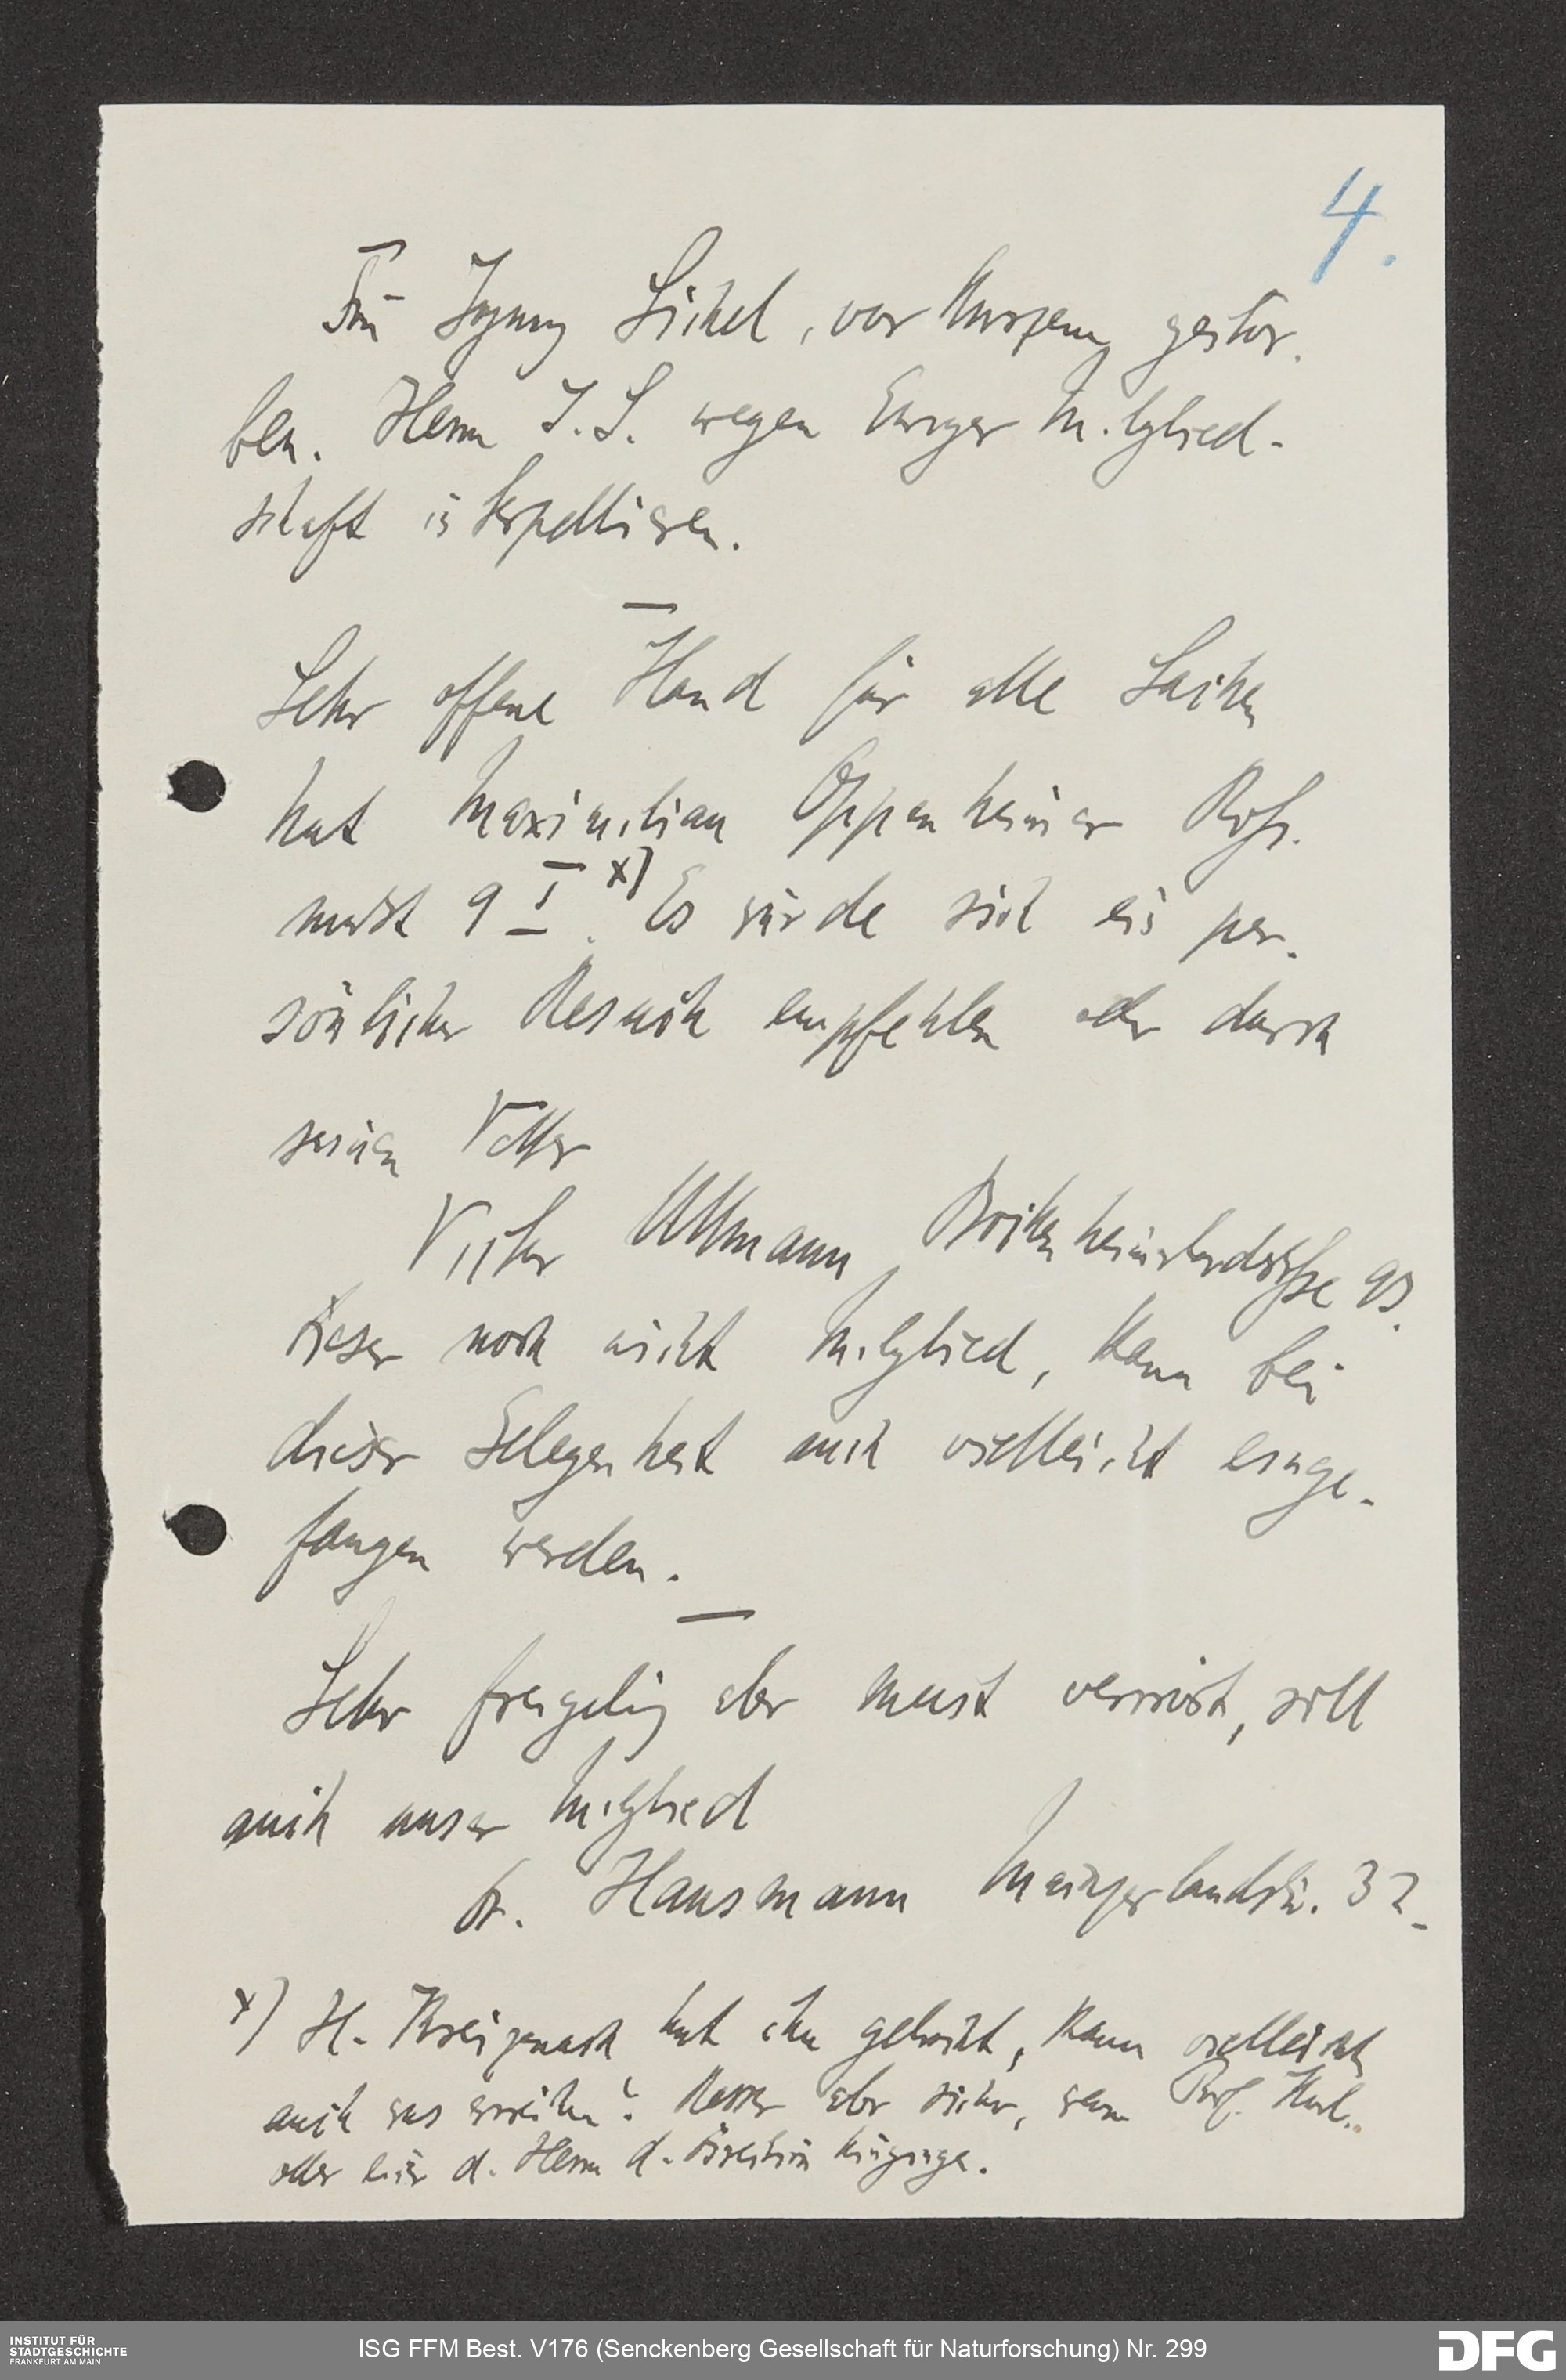 4.
Frau Ignaz Sichel, vor Kurzem gestor-
ben. Herrn I. S. wegen Ewiger Mitglied-
schaft interpellieren.
Sehr offene Hand für alle Sachen
hat Maximilian Oppenheimer Roß-
markt 9 I x). Es würde sich ein per-
sönlicher Besuch empfehlen oder durch
seinen Vetter
Viktor Ullmann, Bockenheimerlandstraße 93.
Dieser noch nicht Mitglied, kann bei
dieser Gelegenheit auch vielleicht einge-
fangen werden.
Sehr freigebig aber meist verreist, soll
auch unser Mitglied
Fr. Hausmann Mainzerlandstr. 32.
x) H. Kreyenbach hat ihn gebracht, kann vielleicht
auch was erreichen? Besser aber sicher, wenn Prof.
oder einer d. Herrn d. Direktion hinginge.
INSTITUT FÜR
STADTGESCHICHTE
FRANKFURT AM MAIN
ISG FFM Best. V176 (Senckenberg Gesellschaft für Naturforschung) Nr. 299
DFG